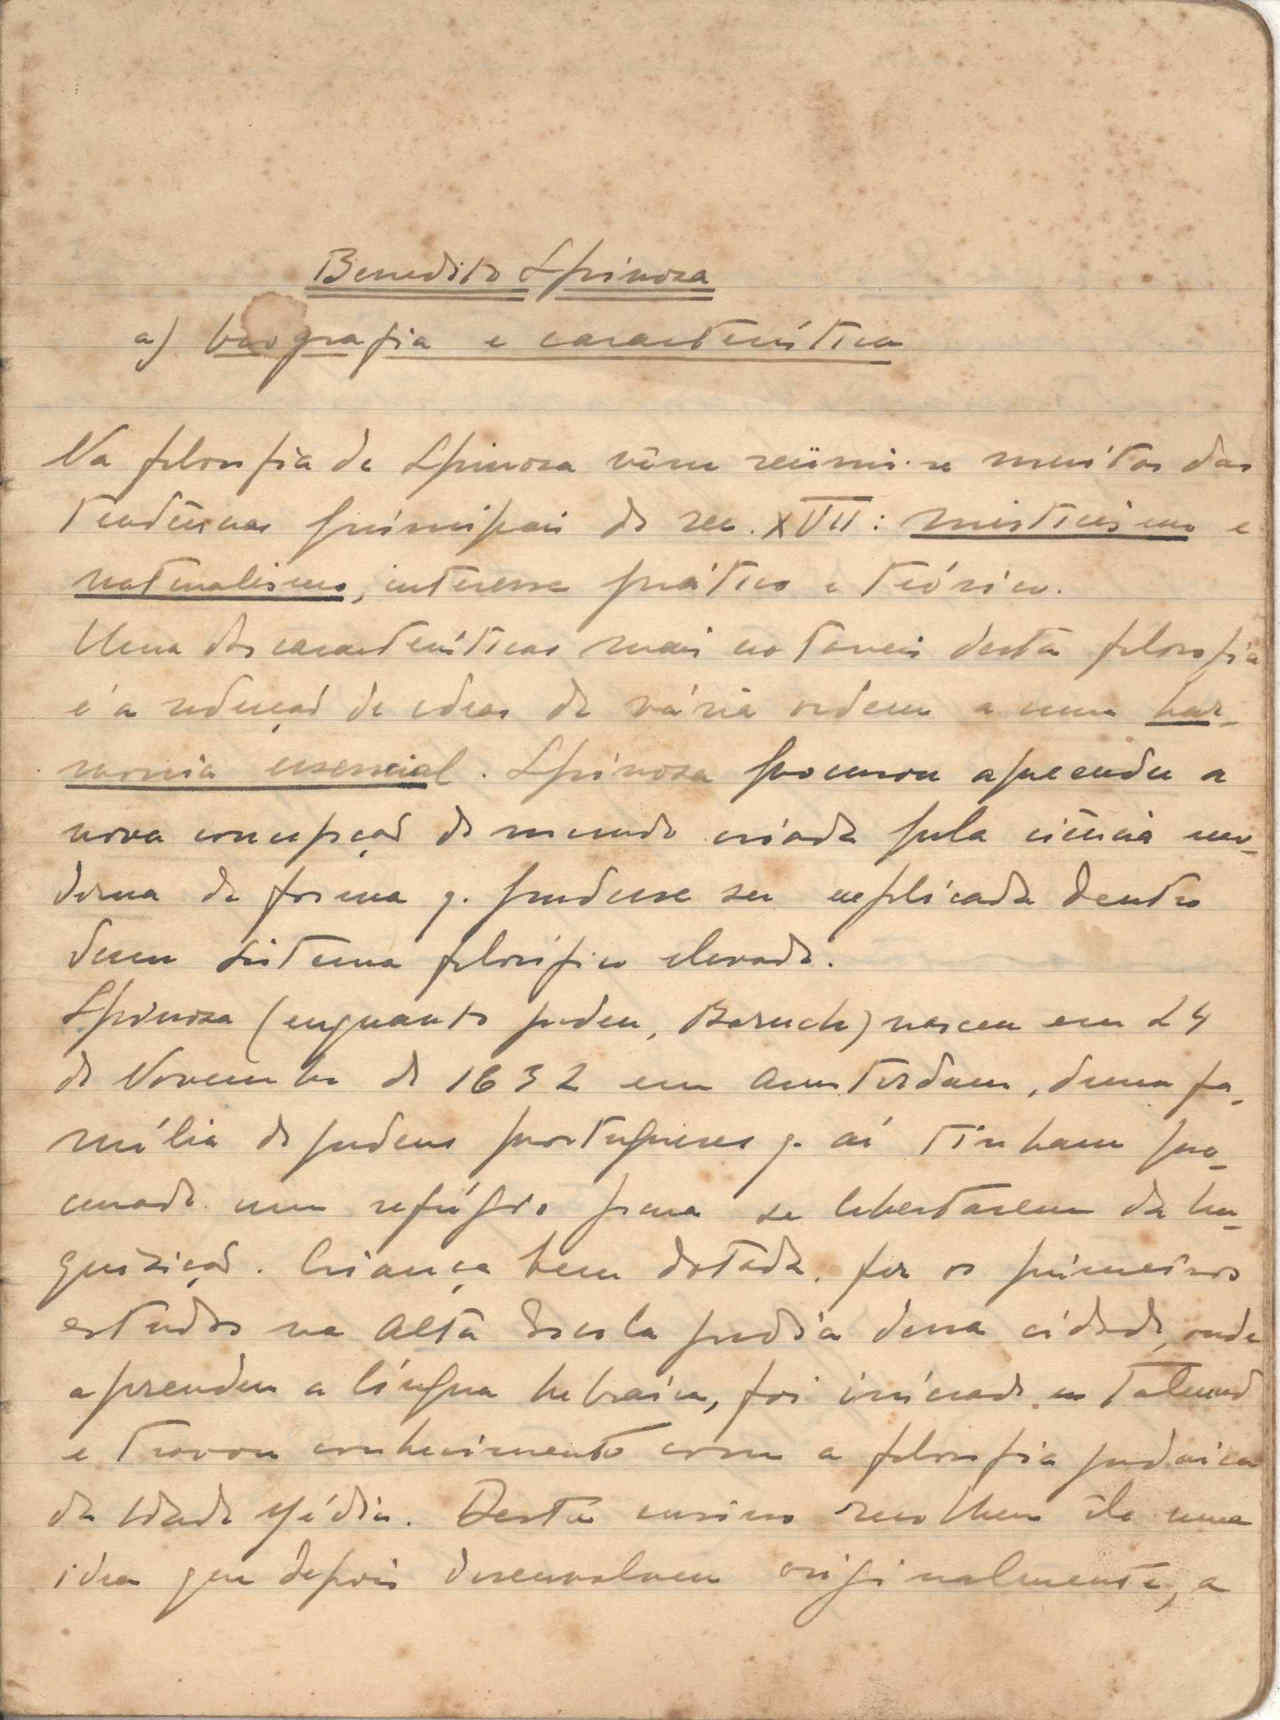 Benedito Spinosa
a) biografia e característica
Na filosofia de Spinosa vêm reünir-se muitas das
tendências principais do sec. XVII: misticismo e
naturalismo, interesse prático e teórico.
Uma das características mais notaveis desta filosofia
é a redução de ideas de vária ordem a uma har-
monia essencial. Spinosa procurou apreender a
nova concepção do mundo criada pela ciência mo-
derna de forma q. pudesse ser explicada dentro
dum sistema filosófico elevado.
Spinosa (enquanto judeu, Baruch) nasceu em 24
de Novembro de 1632 em Amsterdam, duma fa-
mília de judeus portugueses q. aí tinham pro-
curado um refúgio para se libertarem da In-
quisição. Criança bem dotada, fez os primeiros
estudos na Alta Escola judia dessa cidade, onde
aprendeu a língua hebraica, foi iniciado no Talmud
e travou conhecimento com a filosofia judaica
da Idade Média. Deste ensino recolheu êle uma
idea que depois desenvolveu originalmente, a